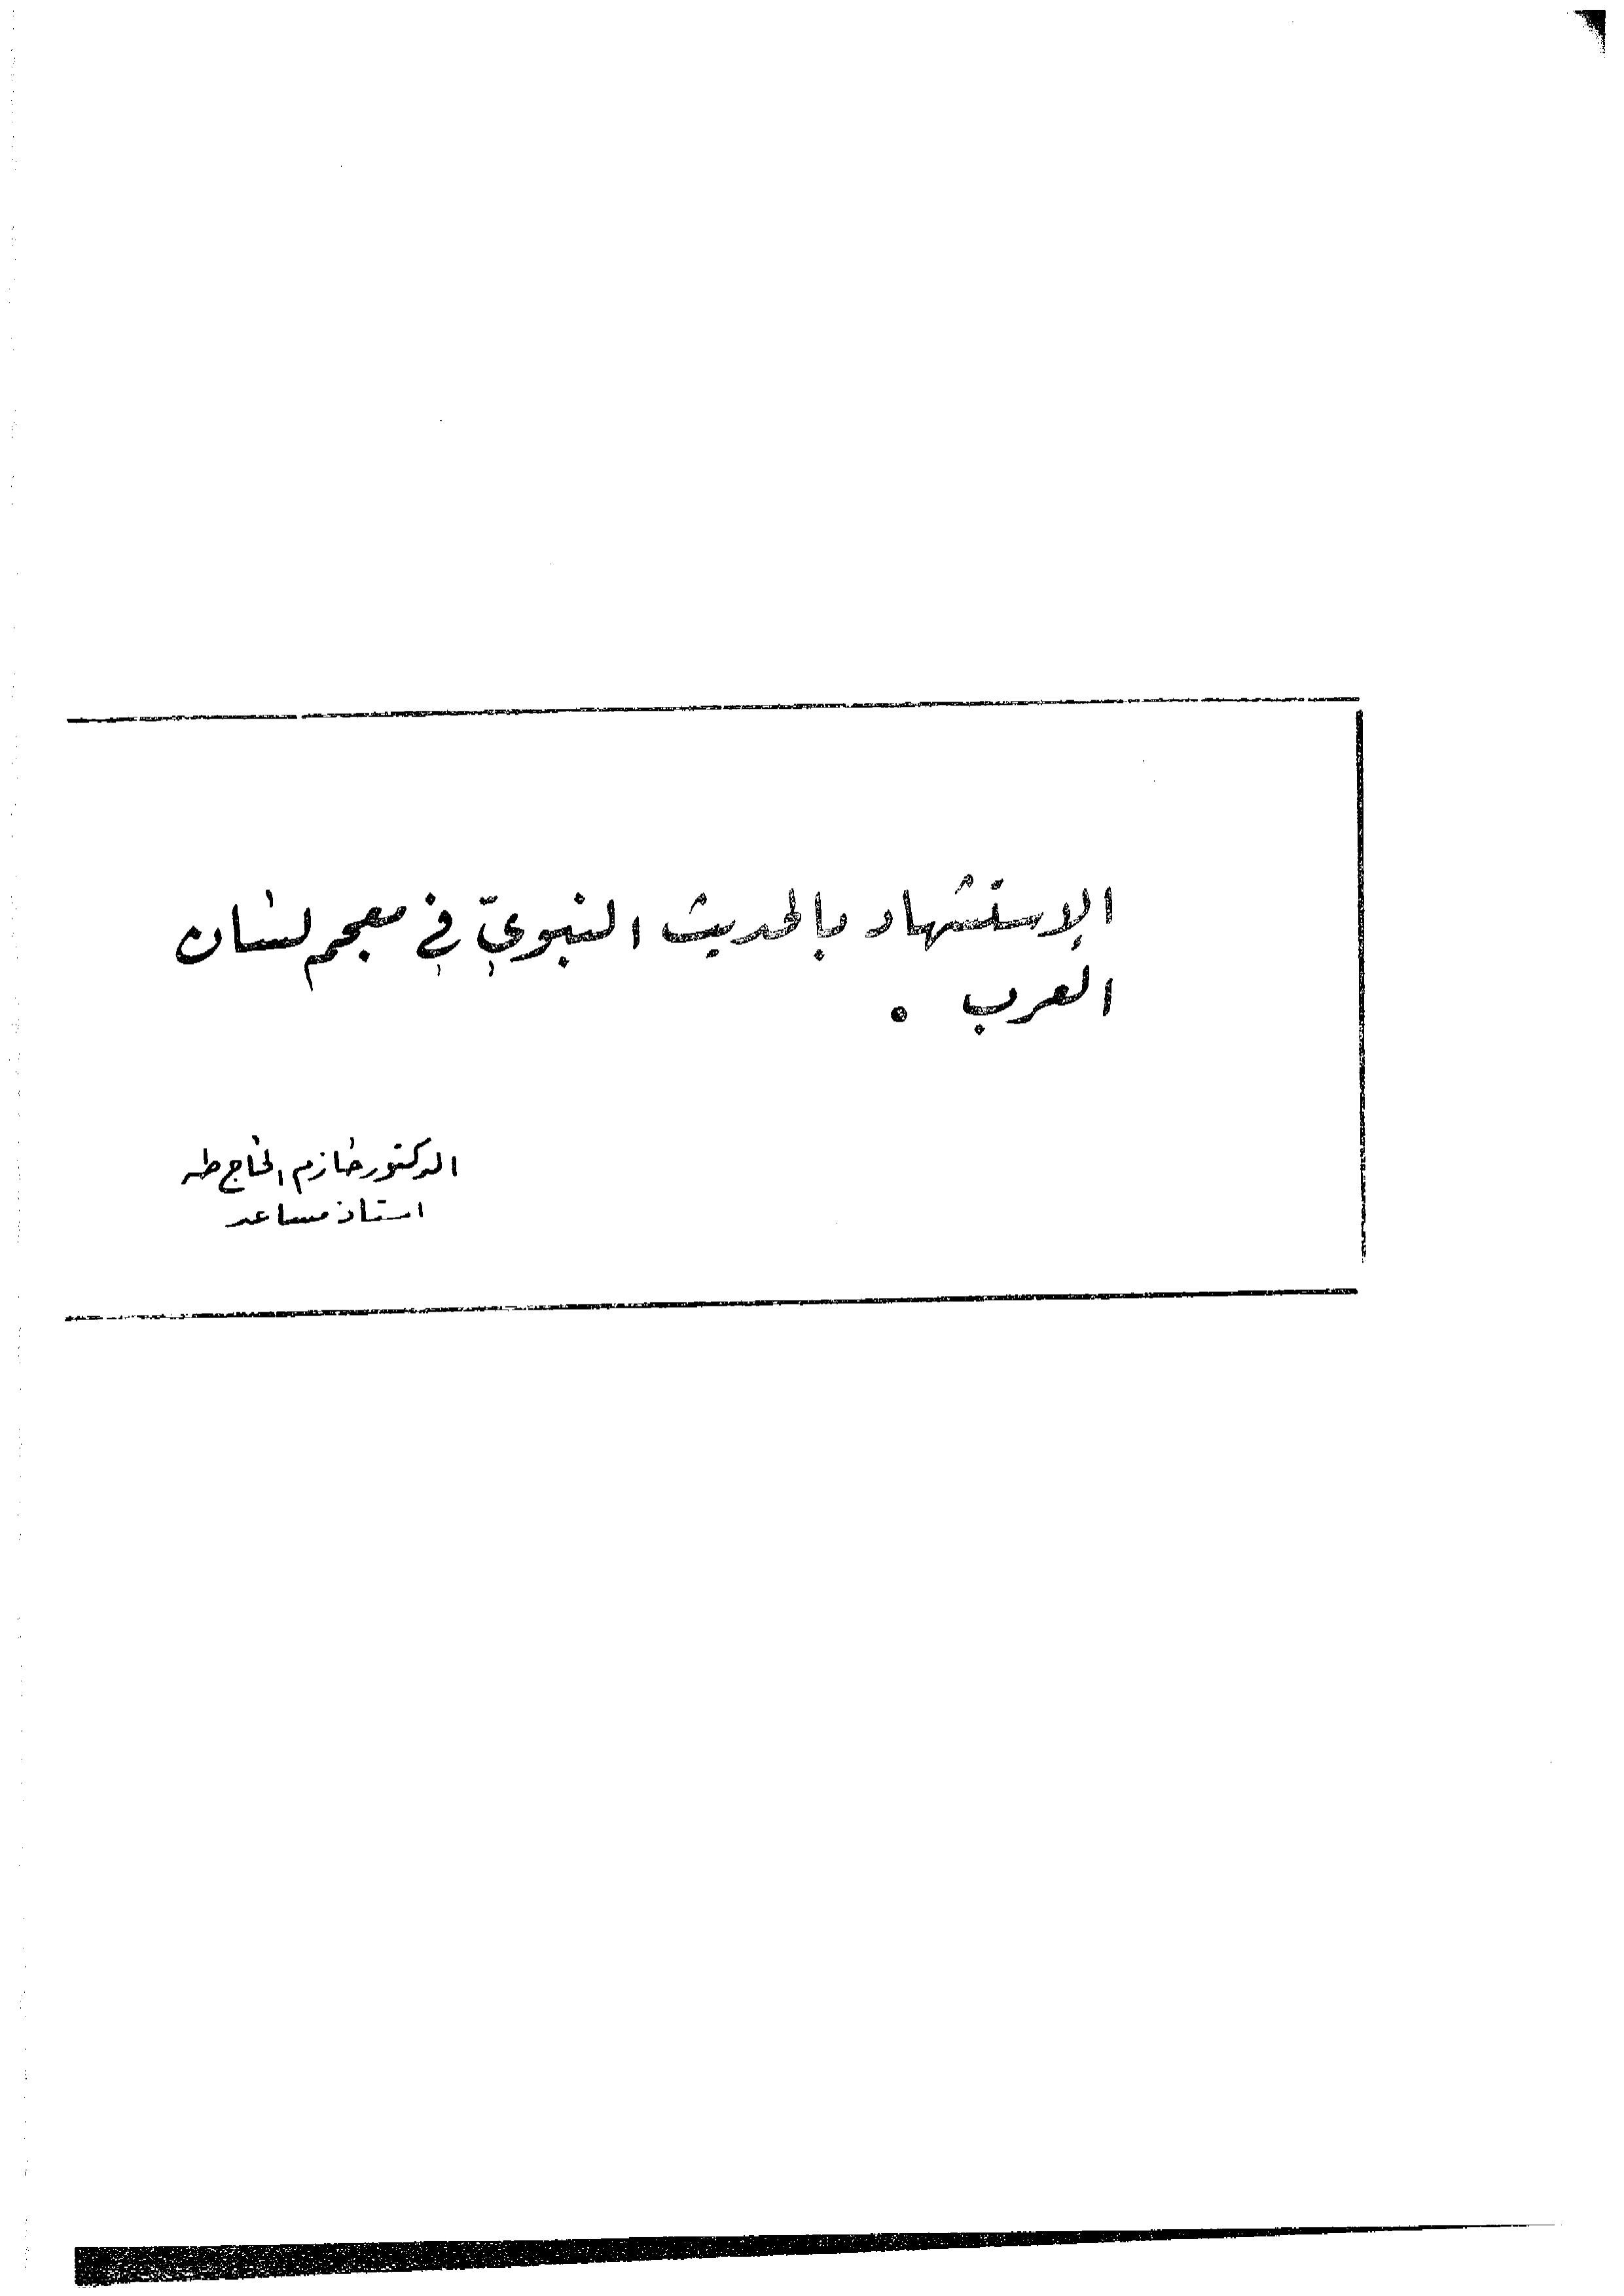 الإستشهاد بالحديث النبويّ في معجم لسان
العرب .
الدكتور حازم الحاج طه
استاذ مساعد